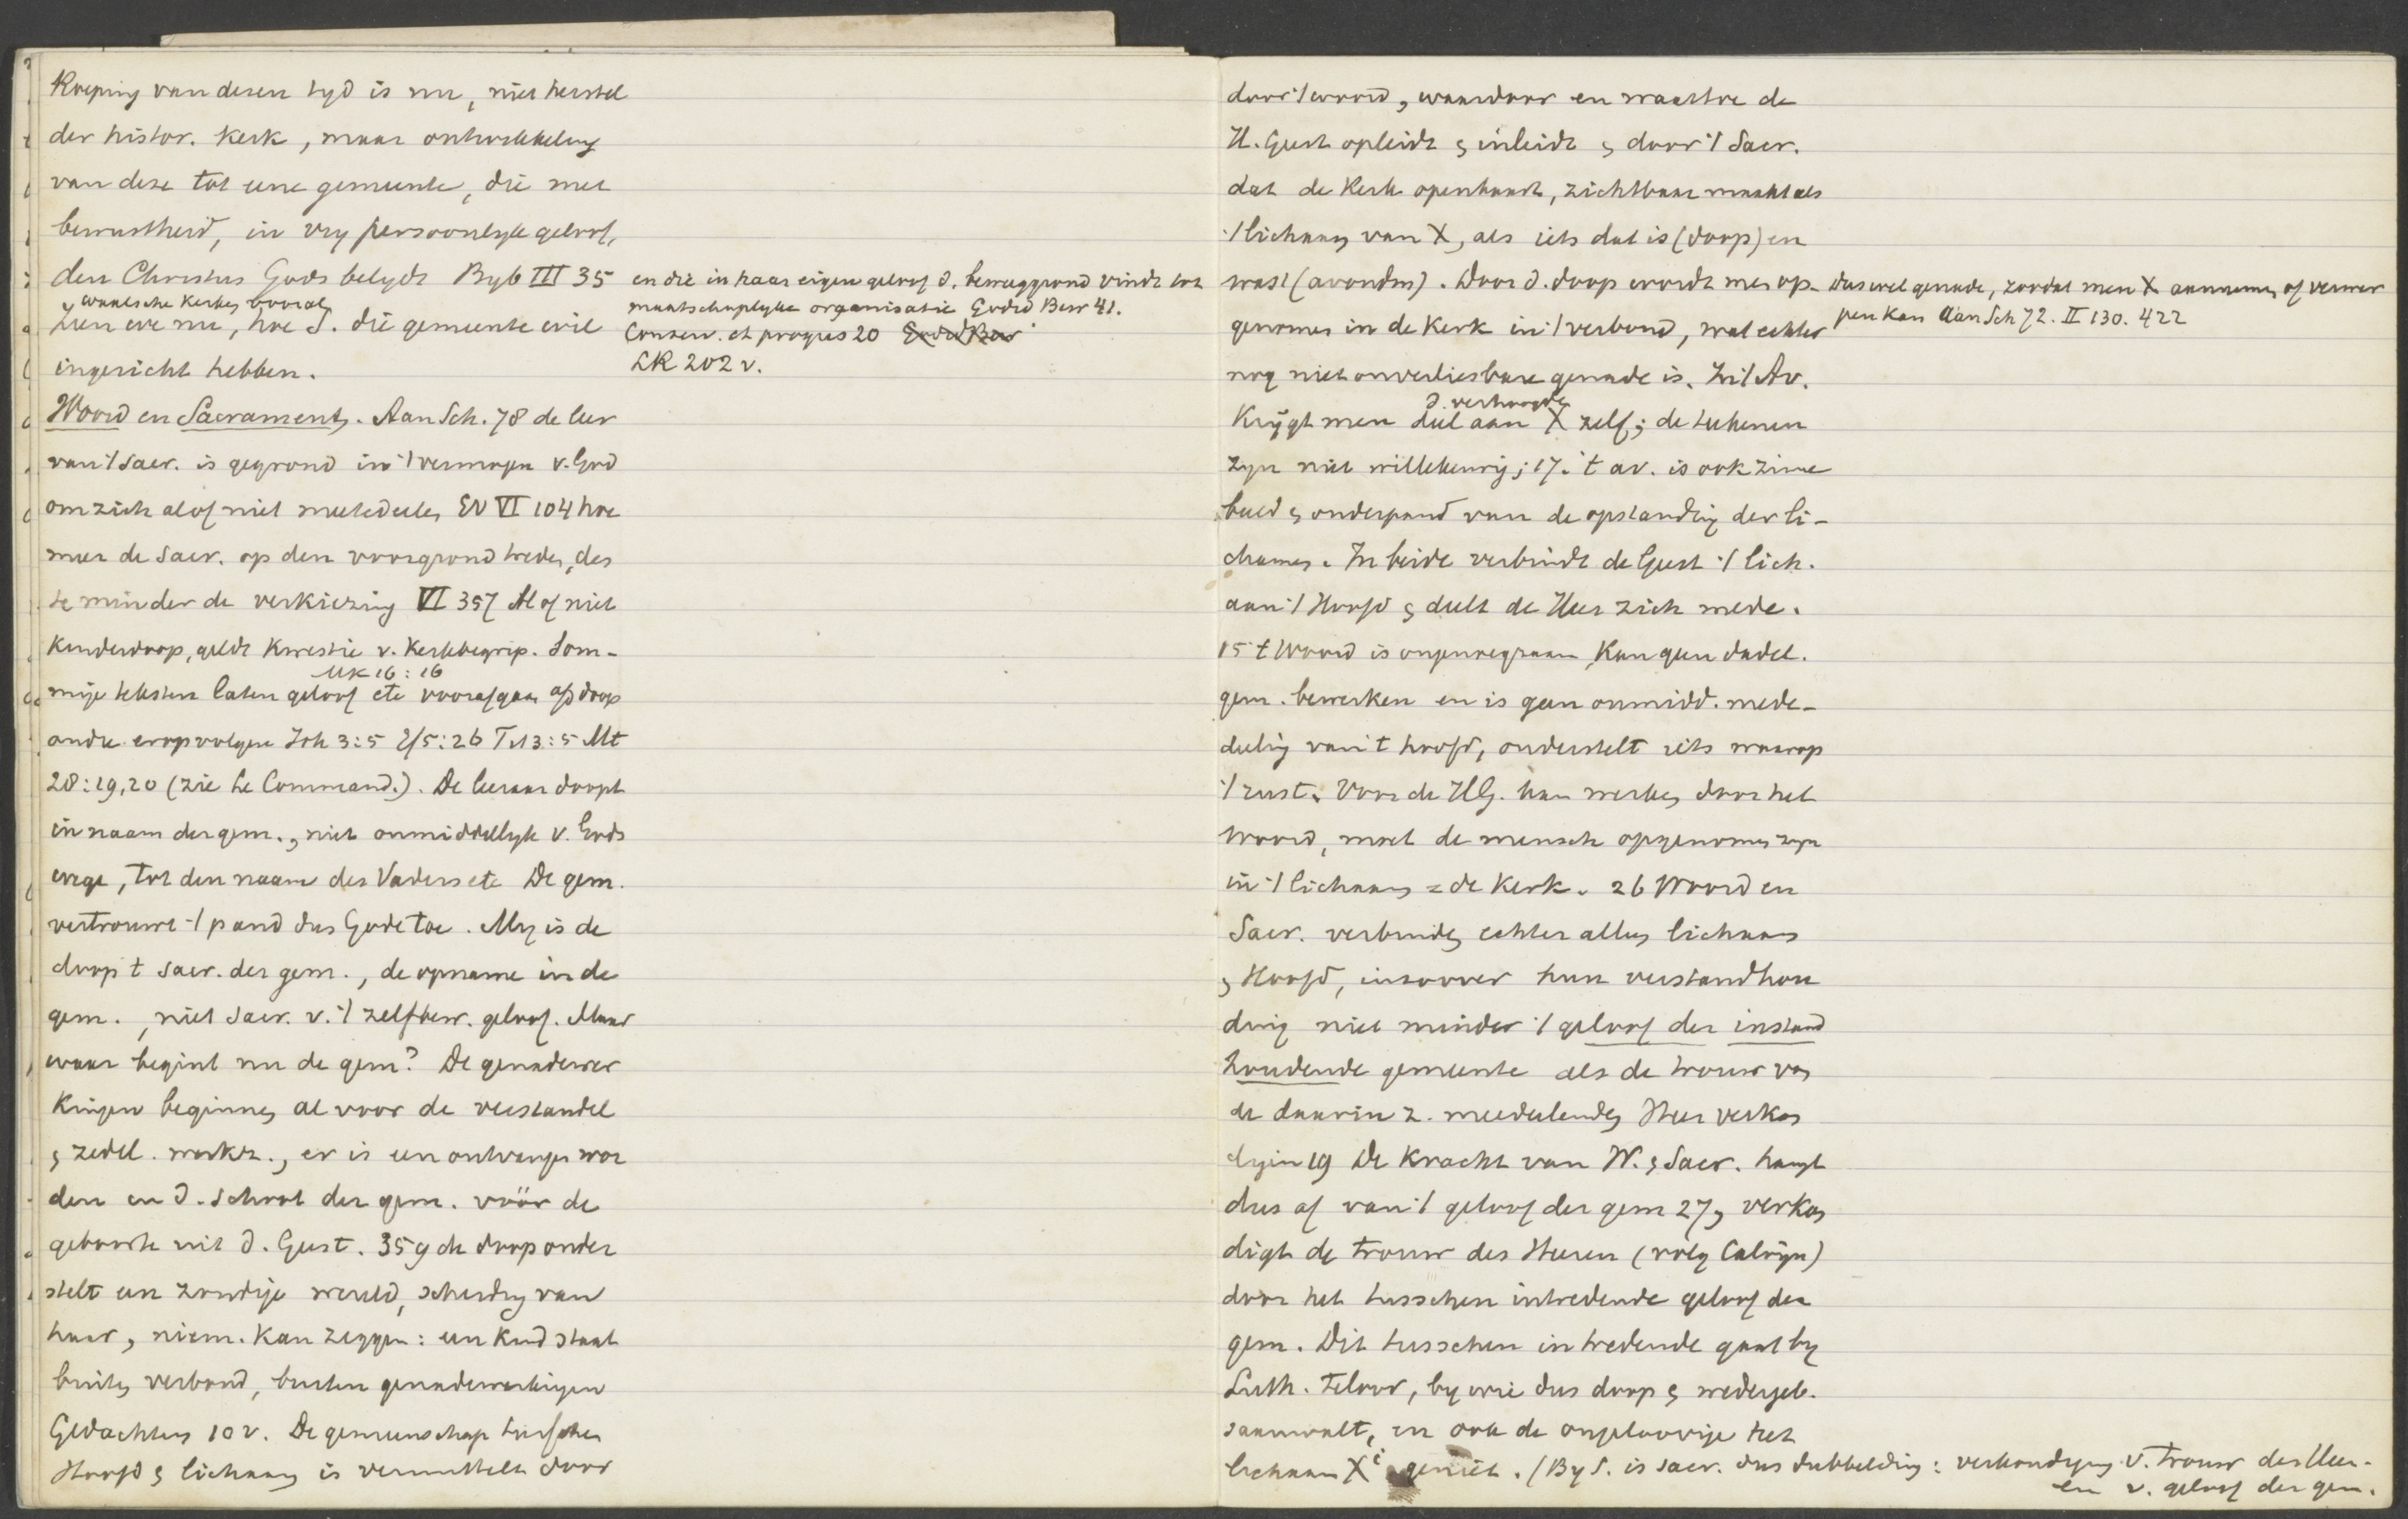 Roeping van dezen tyd is nu, niet herstel
der histor. kerk, maar ontwikkeling
van deze tot eene gemeente, die met
bewustheid, in vry persoonlyk geloof,
den Christus Gods belydt Byb III 35
waalsche kerken vooral
Zien we nu, hoe S. die gemeente wil
ingericht hebben.
en die in haar eigen geloof d. beweeggrond vindt tot
maatschaplyke organisatie Godsd Bew 41.
Conserv. et progrès 20 Godsd Bew
LK 202 v.
Woord en Sacrament. Aan Sch. 78 de leer
van 't Sacr. is gegrond in 't vermogen v. God
om zich al of niet meetedeelen EV VI 104 hoe
meer de Sacr. op den voorgrond treden, des
te minder de verkiezing VI 357 Al of niet
kinderdoop, geldt kwestie v. kerkbegrip. Som-
Mk 16:16
mige teksten laten geloof etc voorafgaan a/d doop
andre erop volgen Joh 3:5 Ef 5:26 Tit 3:5 Mt
28:19,20 (zie Le Command.). De leeraar doopt
in naam der gem., niet onmiddellyk v. Gods
wege, tot den naam des Vaders etc De gem.
vertrouwt 't pand dus Gode toe. My is de
doop t sacr. der gem., de opname in de
gem., niet sacr. v. 't zelfbew. geloof. Maar
waar begint nu de gem? De genadewer
kingen beginnen al voor de verstandel
& zedel. werkz., er is een ontvangen wor
den in d. schoot der gem. vóór de
geboorte uit d. Geest. 359 de doop onder
stelt een zondige wereld, scheiding van
haar, niem. kan zeggen: een kind staat
buiten verband, buiten genadewerkingen
Gedachten 10 v. De gemeenschap tusschen
Hoofd & lichaam is vermiddeld door
door 't woord, waardoor en waartoe de
H. Geest opleidt & inleidt & door 't Sacr.
dat de Kerk openbaart, zichtbaar maakt als
't lichaam van X, als iets dat is (doop) en
wast (avondm). Door d. doop wordt men op-
genomen in de Kerk in 't verbond, wat echter
nog niet onverliesbare genade is. In 't Av.
dus wel genade, zoodat men X aannemen of verwer
pen kan Aan Sch 72. II 130. 422
d. verhoogde
krygt men deel aan X zelf; de teekenen
zyn niet willekeurig; 17. 't av. is ook zinne
beeld & onderpand van de opstanding der li-
chamen. In beide verbindt de Geest 't lich.
aan 't Hoofd & deelt de Heer zich mede.
15 t Woord is ongenoegzaam kan geen dadel.
gem. bewerken en is geen onmidd. mede-
deeling van 't hoofd, onderstelt iets waarop
't rust. Voor de HG. kan werken door het
Woord, moet de mensch opgenomen zyn
in 't lichaam = de Kerk. 26 Woord en
Sacr. verbinden echter alleen lichaam
& Hoofd, inzoover hun verstandhou
ding niet minder 't geloof der instand
houdende gemeente als de trouw van
de daarin z. meedeelenden Heer verkon
digen 19 De kracht van W. & Sacr. hangt
dus af van 't geloof der gem 27, verkon
digt de trouw des Heeren (volg Calvijn)
door het tusschen intredende geloof der
gem. Dit tusschen intredende gaat by
Luth. teloor, by wie dus doop & wedergeb.
saamvalt, en ook de ongeloovige het
lichaam Xi geniet. (By S. is sacr. dus dubbelding: verkondiging v. trouw des Heer-
en v. geloof der gem.